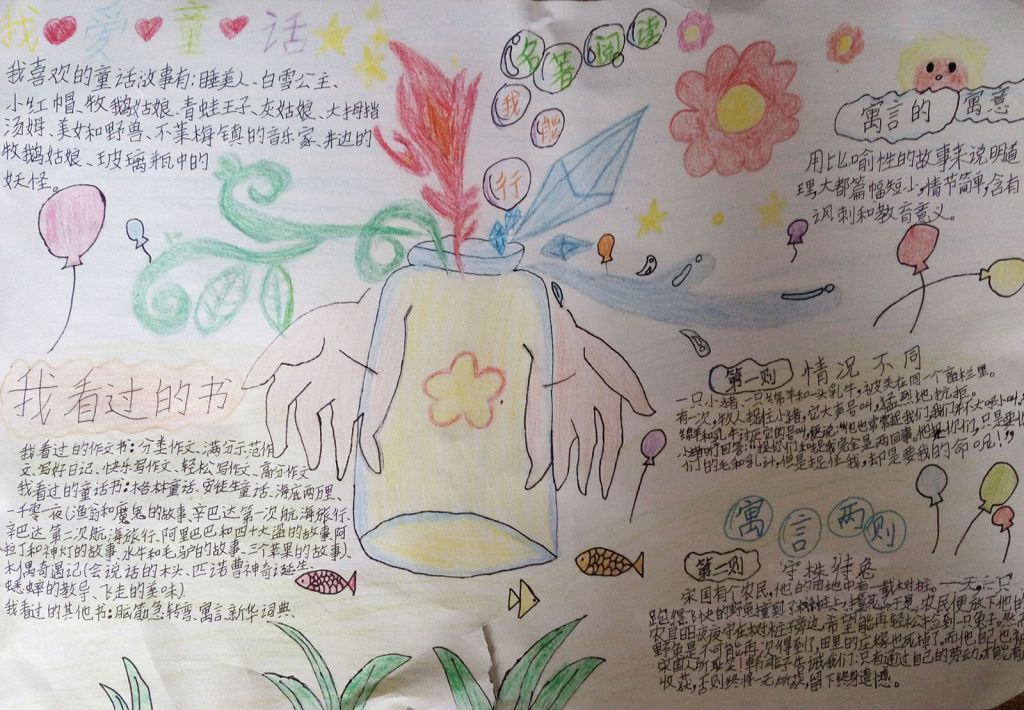 我爱童话
我喜欢的童话故事有:睡美人、白雪公主、
小红帽、牧鹅姑娘、青蛙王子、灰姑娘、大拇指
汤姆、美女和野兽、不莱梅镇的音乐家、井边的
牧鹅姑娘、玻璃瓶中的
妖怪。
名著阅读
我能
行
寓言的寓意
用比喻性的故事来说明道
理,大都篇幅短小,情节简单,含有
讽刺和教育意义。
我看过的书
我看过的作文书:分类作文、满分示范作
文、写好日记、快乐写作文、轻松写作文、高分作文
我看过的童话书:格林童话、安徒生童话、海底两万里、
一千零一夜(渔翁和魔鬼的故事、辛巴达第一次航海旅行、
辛巴达第二次航海旅行、阿里巴巴和四十大盗的故事、阿
拉丁和神灯的故事、水牛和毛驴的故事、三个苹果的故事)、
木偶奇遇记(会说话的木头、匹诺曹神奇诞生、
蟋蟀的教导、飞走的美味)
我看过的其他书:脑筋急转弯、寓言、新华词典
第一则 情况不同
一只小猪、一只绵羊和一头乳牛,被关在同一个畜栏里。
有一次,牧人捉住小猪,它大声号叫,猛烈地抗拒。
们的毛和乳汁,但是捉住我,却是要我的命呢!"
寓言两则
第二则 守株待兔
宋国有个农民,他的田地中有一截树桩。一天,一只
跑得飞快的野兔撞到了树桩上,撞死了。于是,农民便放下他的
农具日日夜夜守在树桩旁边,希望能再轻松拾到一只兔子。
野兔是不可能再次得到了,田里的庄稼也死掉了。而他自己也
宋国人所耻笑!韩非子告诫我们:只有通过自己的劳动,才能有
收获,否则终将一无所获,留下终身遗憾。